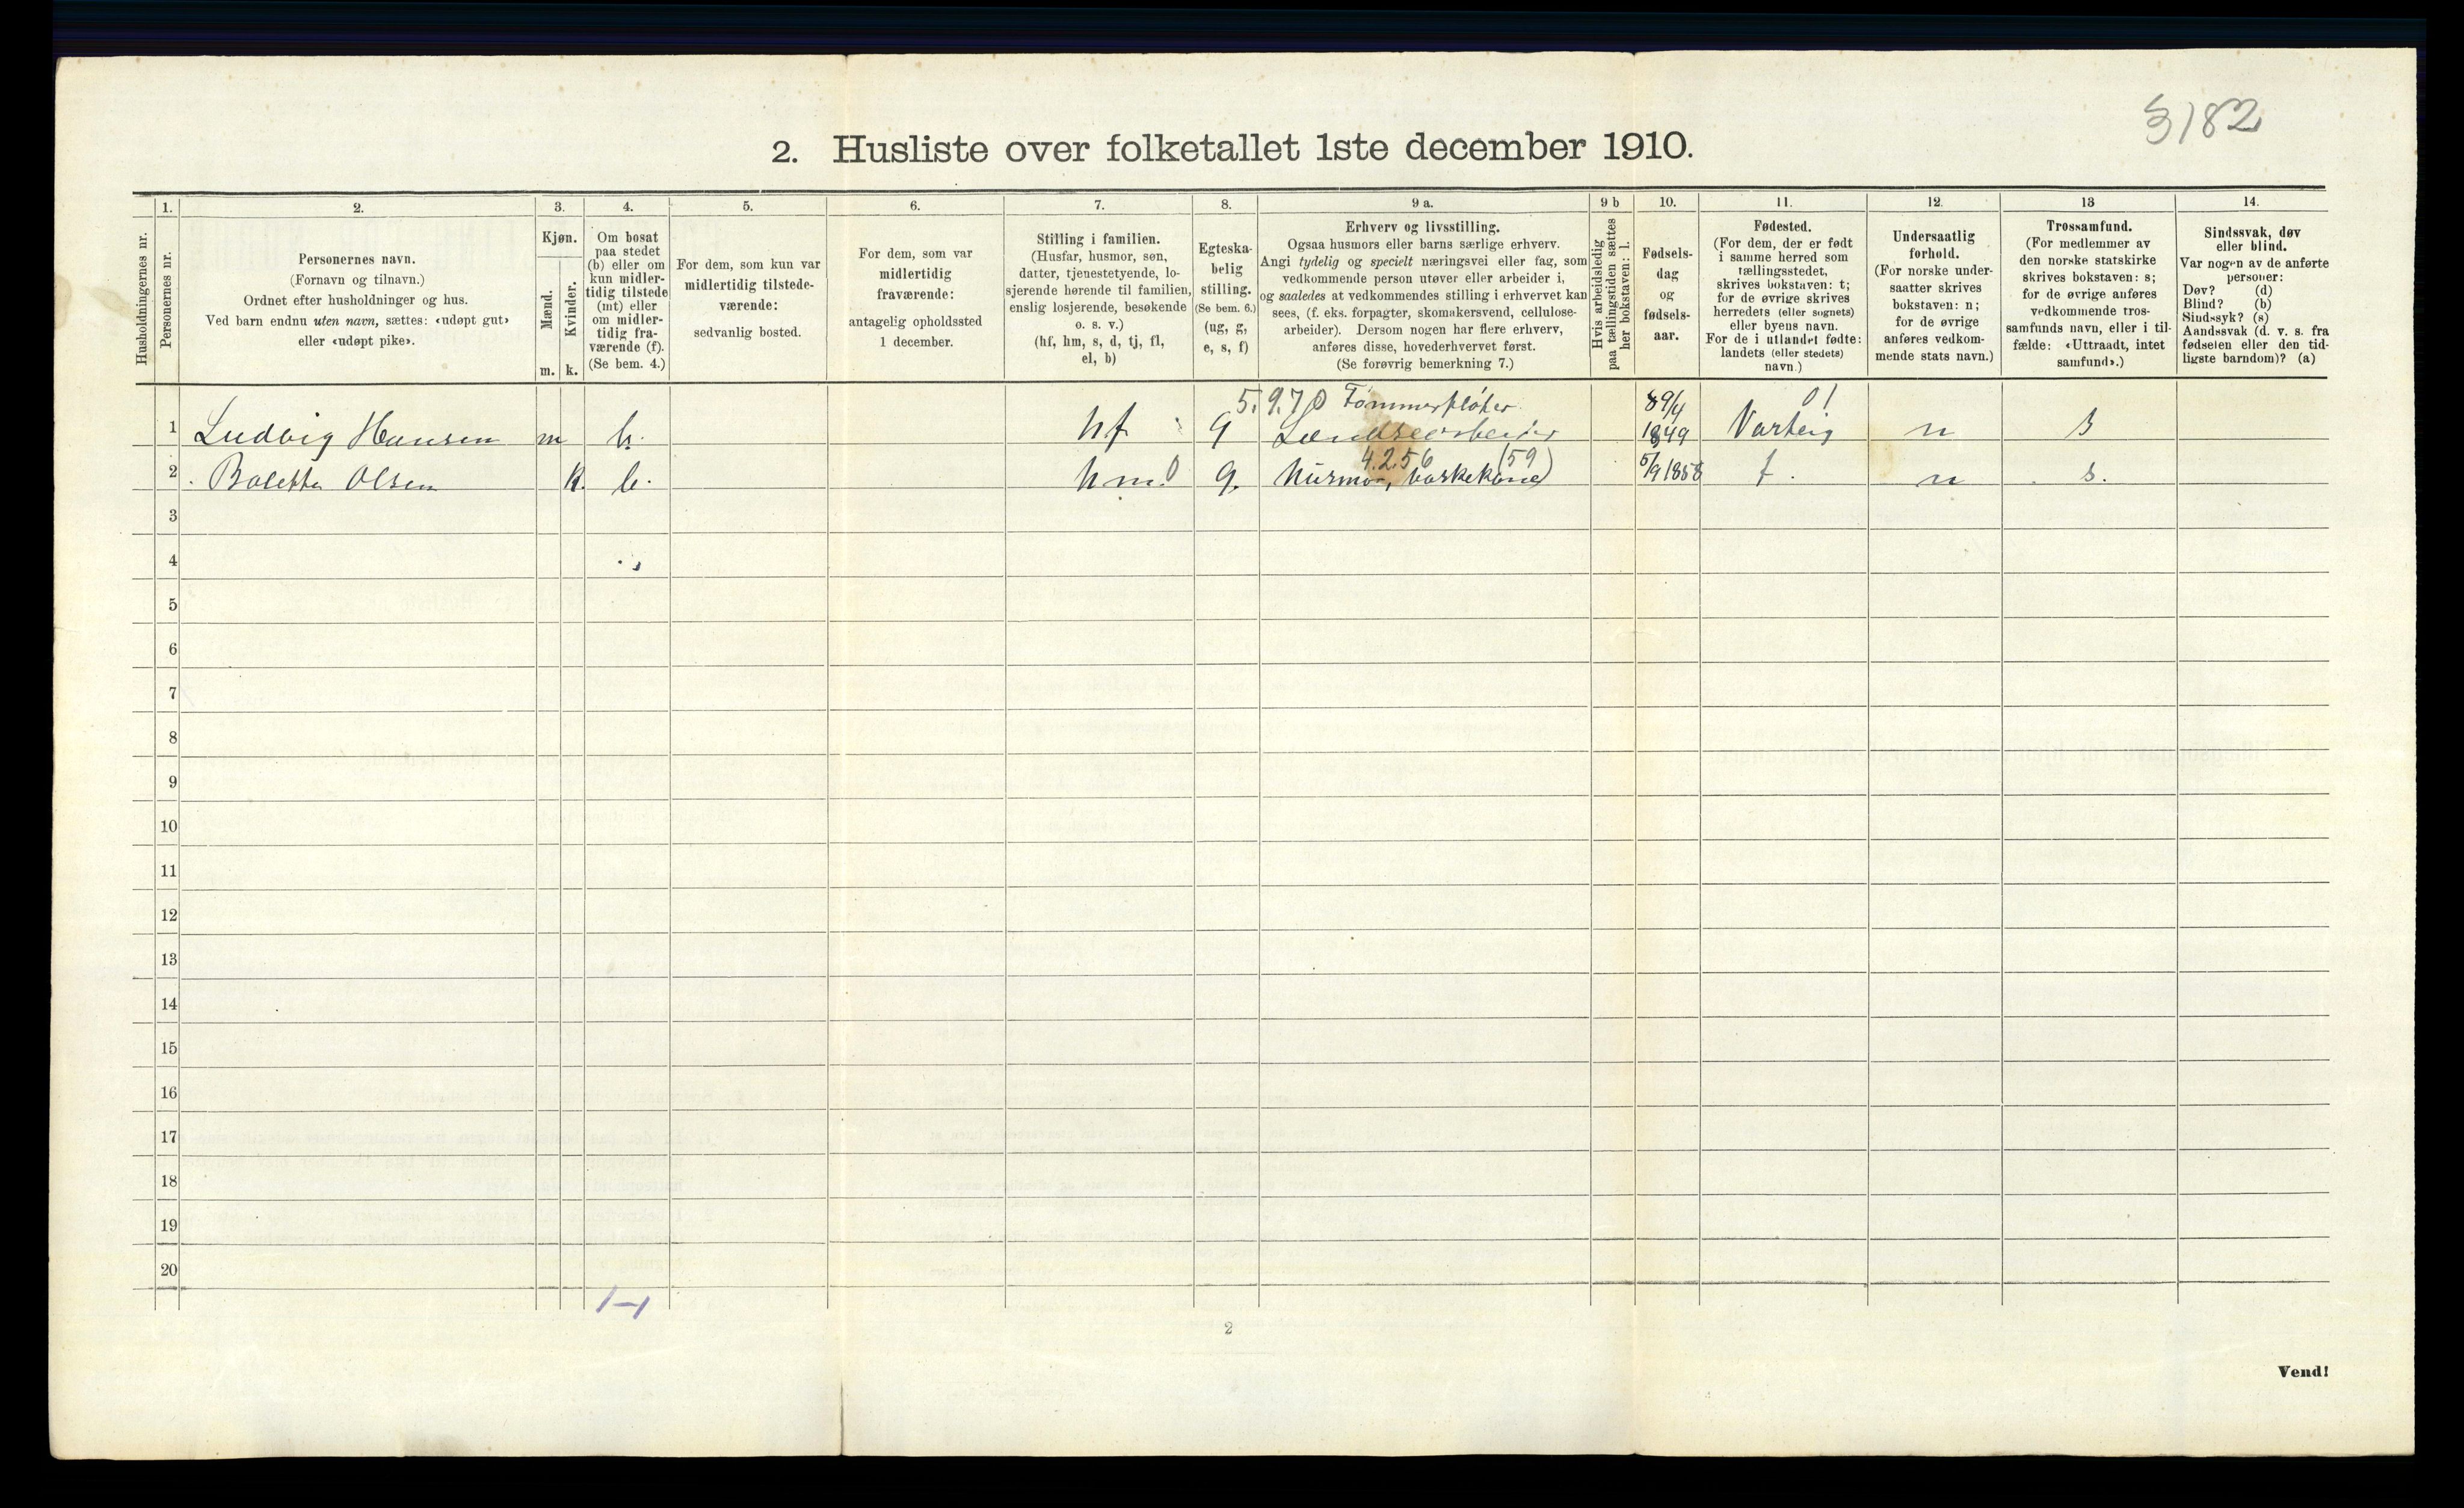 3182
2. Husliste over folketallet 1ste december 1910.
Husholdningernes nr.
1.
Personernes nr.
2.
Personernes navn.
(Fornavn og tilnavn.)
Ordnet efter husholdninger og hus.
Ved barn endnu uten navn, sættes: «udøpt gut»
eller «udøpt pike».
3.
Kjøn.
Mænd.
Kvinder.
m. k.
4.
Om bosat
paa stedet
(b) eller om
kun midler-
tidig tilstede
(mt) eller
om midler-
tidig fra-
værende (f).
(Se bem. 4.)
5.
For dem, som kun var
midlertidig tilstede-
værende:
sedvanlig bosted.
6.
For dem, som var
midlertidig
fraværende:
antagelig opholdssted
1 december.
7.
Stilling i familien.
(Husfar, husmor, søn,
datter, tjenestetyende, lo-
sjerende hørende til familien,
enslig losjerende, besøkende
o. s. v.)
(hf, hm, s, d, tj, fl,
el, b)
8.
Egteska-
belig
stilling.
(Se bem. 6.)
(ug, g,
e, s, f)
9 a.
Erhverv og livsstilling.
Ogsaa husmors eller barns særlige erhverv.
Angi tydelig og specielt næringsvei eller fag, som
vedkommende person utøver eller arbeider i,
og saaledes at vedkommendes stilling i erhvervet kan
sees, (f. eks. forpagter, skomakersvend, cellulose-
arbeider). Dersom nogen har flere erhverv,
anføres disse, hovederhvervet først.
(Se forøvrig bemerkning 7.)
9 b
Hvis arbeidsledig
paa tællingstiden sættes
her bokstaven: l.
10.
Fødsels-
dag
og
fødsels-
aar.
11.
Fødested.
(For dem, der er født
i samme herred som
tællingsstedet,
skrives bokstaven: t;
for de øvrige skrives
herredets (eller sognets)
eller byens navn.
For de i utlandet fødte:
landets (eller stedets)
navn.)
12.
Undersaatlig
forhold.
(For norske under-
saatter skrives
bokstaven: n;
for de øvrige
anføres vedkom-
mende stats navn.)
13
Trossamfund.
(For medlemmer av
den norske statskirke
skrives bokstaven: s;
for de øvrige anføres
vedkommende tros-
samfunds navn, eller i til-
fælde: «Uttraadt, intet
samfund».)
14.
Sindssvak, døv
eller blind.
Var nogen av de anførte
personer:
Døv? (d)
Blind? (b)
Sindssyk? (s)
Aandssvak (d. v. s. fra
fødselen eller den tid-
ligste barndom)? (a)
5.9.70 Tømmerfløter 9/4 01
1 Ludvig Hansen m b. hf g 1849 Varteig n s
4.2.56 (59)
2 Bolette Olsen k. b. hm. 0 g. Husmor, Vaskekone 5/9 1858 t. n s.
3
4
5
6
7
8
9
10
11
12
13
14
15
16
17
18
19
20
1-1
2
Vend!